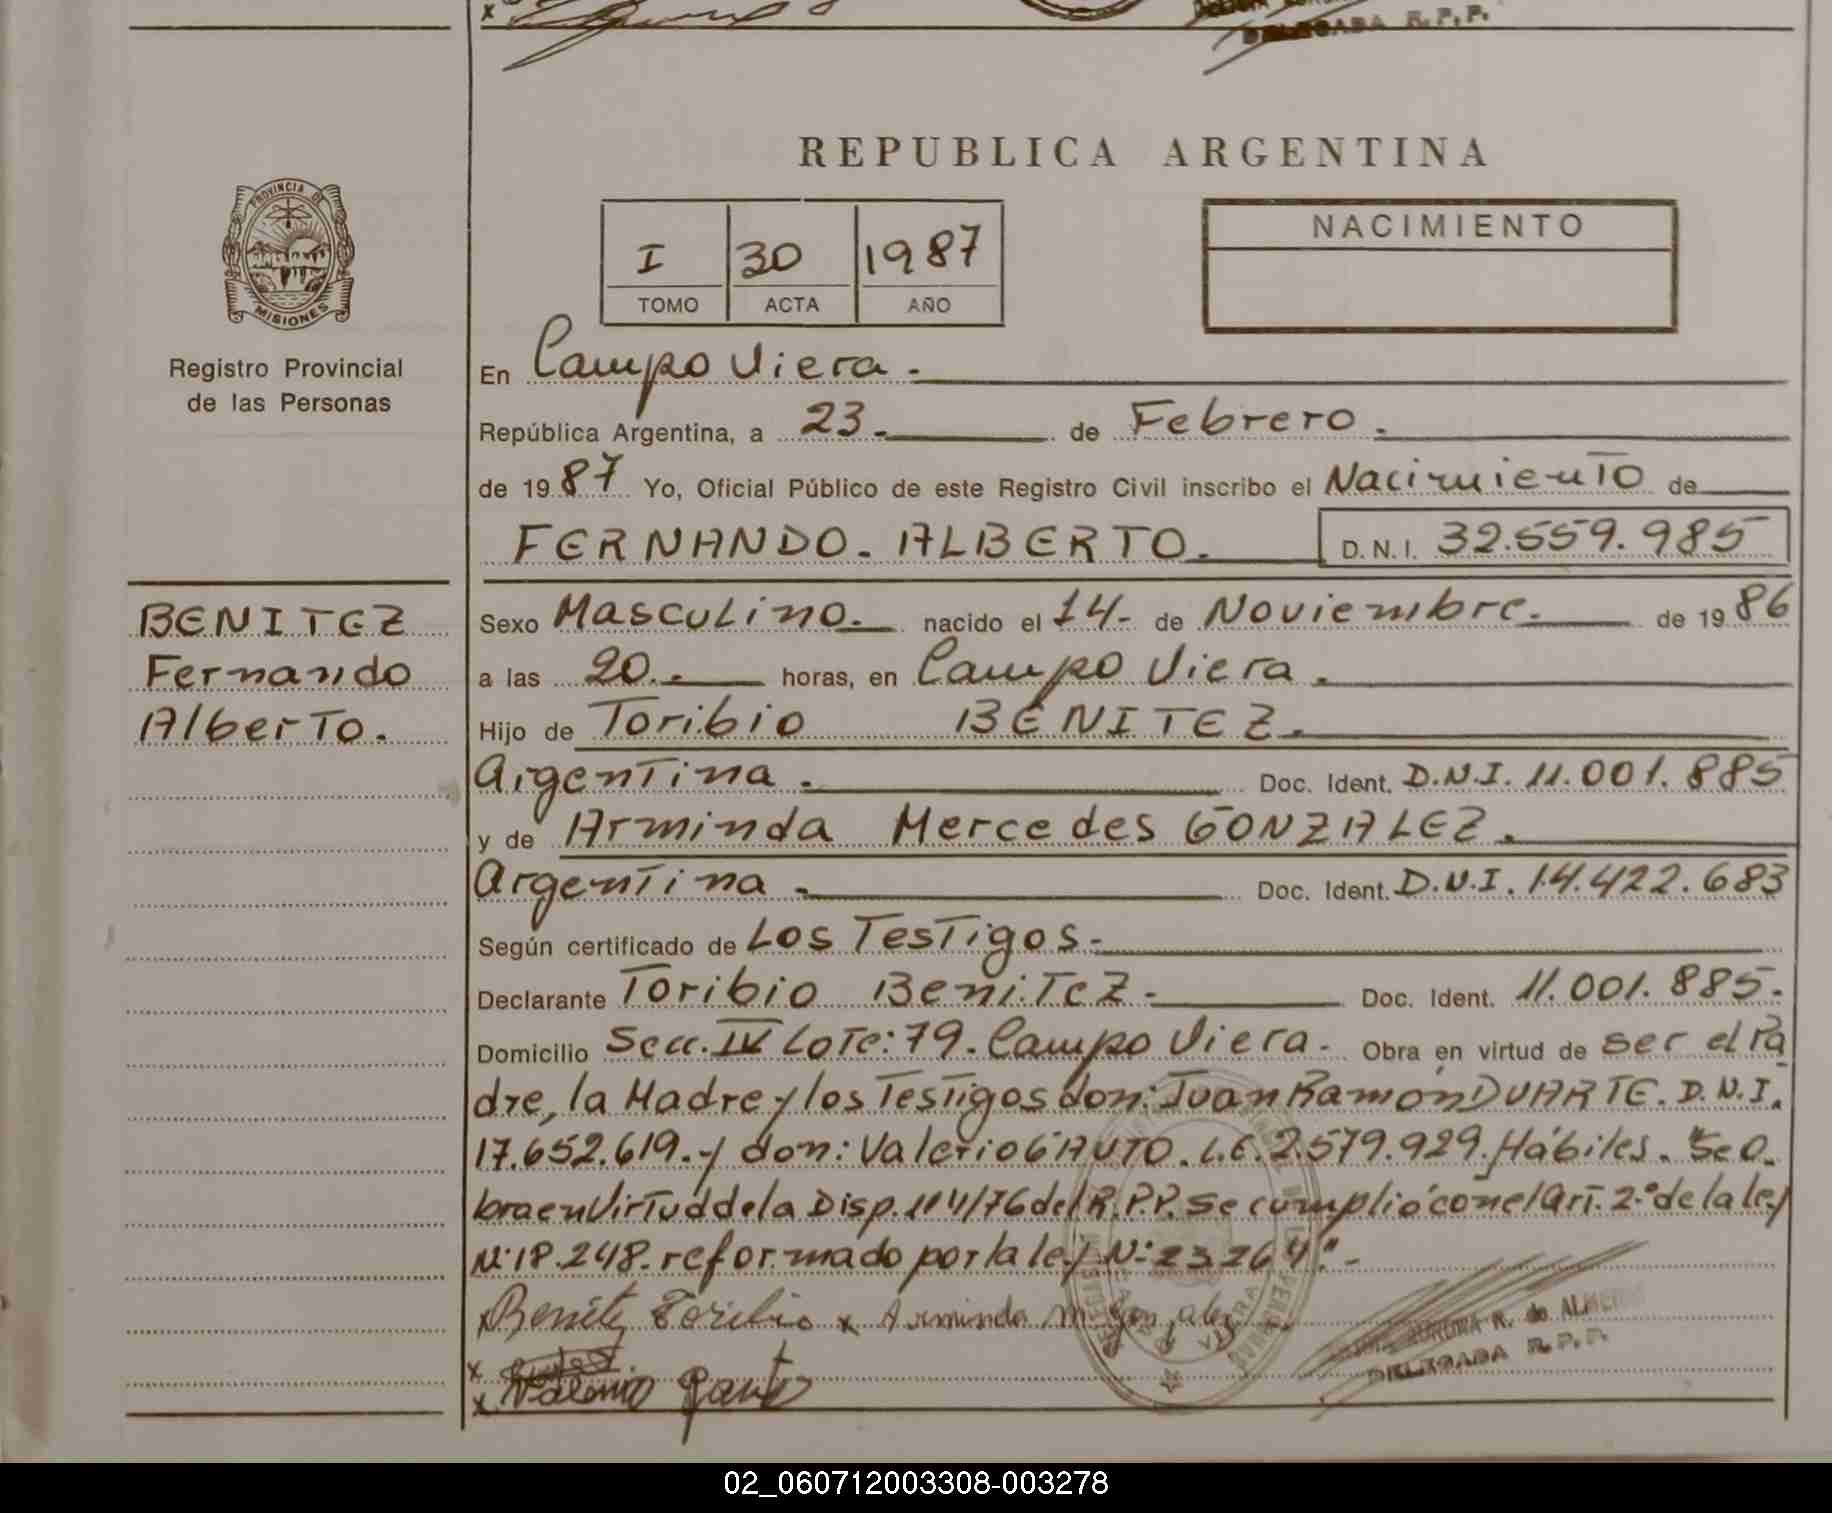 DELEGADA R. P. P.
REPUBLICA ARGENTINA
PROVINCIA DE
MISIONES
Registro Provincial
de las Personas
I 30 1987
TOMO ACTA AÑO
NACIMIENTO
En Campo Viera.
República Argentina, a 23. de Febrero.
de 1987 Yo, Oficial Público de este Registro Civil inscribo el Nacimiento de
FERNANDO. ALBERTO. D.N.I. 32.559.985
BENITEZ
Fernando
Alberto.
Sexo Masculino. nacido el 14- de Noviembre. de 1986
a las 20.. horas, en Campo Viera.
Hijo de Toribio BENITEZ.
Argentina. Doc. Ident. D.N.I. 11.001.885
y de Arminda Mercedes GONZALEZ.
Argentina. Doc. Ident. D.N.I. 14.422.683
Según certificado de Los Testigos-
Declarante Toribio BeniTeZ- Doc. Ident. 11.001.885.
Domicilio Secc. IV Lote: 79. Campo Viera. Obra en virtud de ser el Pa
dre, la Madre y los Testigos don: Juan Ramón DUARTE. D.N.I.
17.652.619.-y don: Valerio GAUTO. L.E. 2.579.929. Hábiles. Se O.
bra en Virtud de la Disp. 114/76 del R.P.P. Se cumplió con el Art. 2.º de la ley
Nº 18.248. reformado por la ley Nº 23.264."-
x Benitez Toribio x Arminda M
x
x Valerio Gauto
AURORA R. de ALMEIDA
DELEGADA R. P. P.
02_060712003308-003278